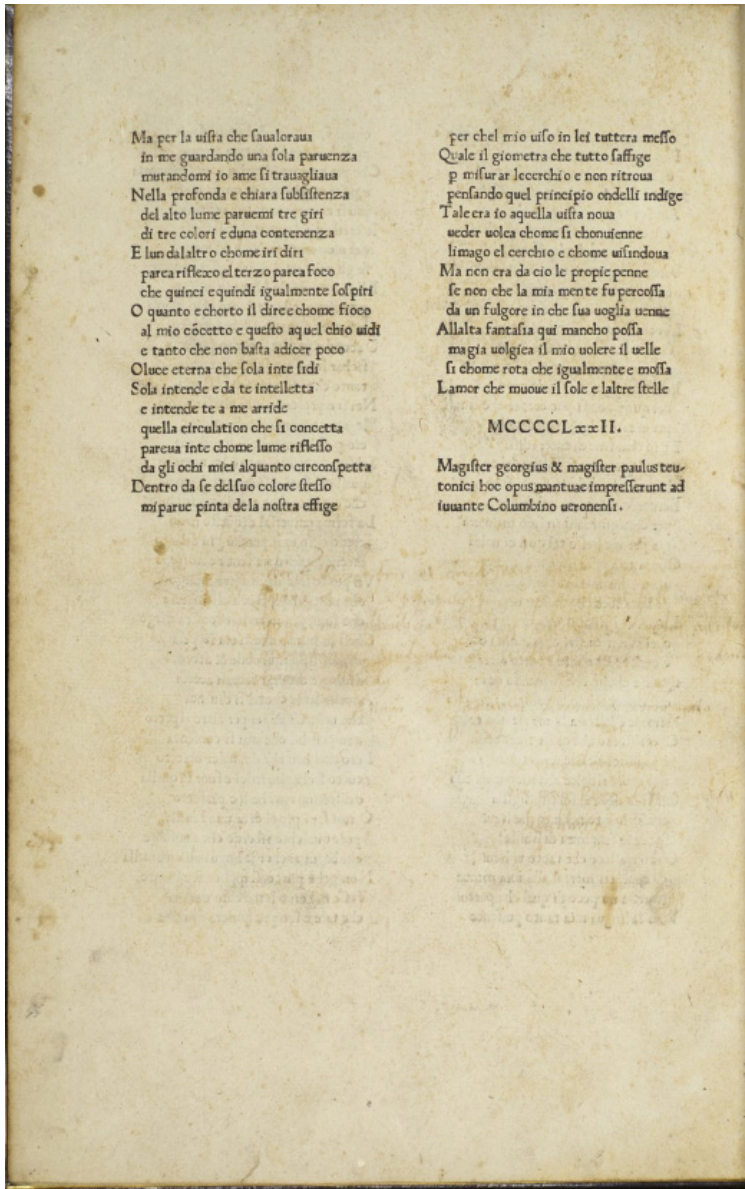 Ma per la uiſta che ſaualoraua
in me guardando una ſola paruenza
mutandomi io ame ſi trauagliaua
Nella profonda e chiara ſubſiſtenza
del alto lume paruemi tre giri
di tre colori e duna contenenza
E lun dalaltro chome iri diri
parea riflexo el terzo parea foco
che quinci e quindi igualmente ſoſpiri
O quanto e chorto il dire e chome fioco
al mio cõcetto e queſto a quel chio uidi
e tanto che non baſta adicer poco
Oluce eterna che ſola inte ſidi
Sola intende e da te intelletta
e intende te a me arride
quella circulation che ſi concetta
pareua inte chome lume rifleſſo
da gli ochi miei alquanto circonſpetta
Dentro da ſe del ſuo colore ſteſſo
mi parue pinta de la noſtra effige
per chel mio uiſo in lei tuttera meſſo
Quale il giometra che tutto ſaffige
p miſurar lecerchio e non ritroua
penſando quel principio ondelli indige
Tale era io aquella uiſta noua
ueder uolea chome ſi chonuienne
limago el cerchio e chome uiſindoua
Ma non era da cio le propie penne
ſe non che la mia mente fu percoſſa
da un fulgore in che ſua uoglia uenne
Allalta fantaſia qui mancho poſſa
ma gia uolgiea il mio uolere il uelle
ſi chome rota che igualmente e moſſa
Lamor che muoue il ſole e laltre ſtelle
MCCCCLxxII.
Magiſter georgius & magiſter paulus teu-
tonici hoc opus mantuae impreſſerunt ad
iuuante Columbino ueronenſi.